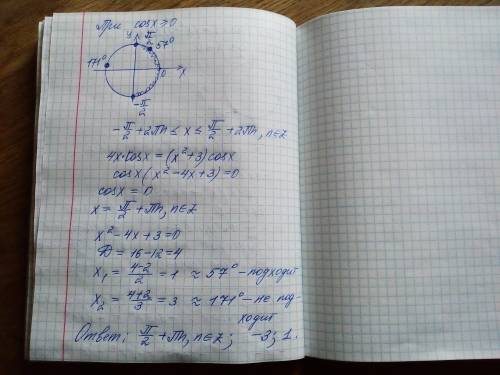 При cosx ≥ 0
y π/2 57°
171° 0 x
-π/2
-π/2 + 2πn ≤ x ≤ π/2 + 2πn, n∈Z
4x·cosx = (x² + 3) cosx
cosx (x² - 4x + 3) = 0
cosx = 0
x = π/2 + πn, n∈Z
x² - 4x + 3 = 0
D = 16 - 12 = 4
x₁ = (4-2)/2 = 1 ≈ 57° - подходит
x₂ = (4+2)/3 = 3 ≈ 171° - не под-
ходит
Ответ: π/2 + πn, n∈Z; -3; 1.